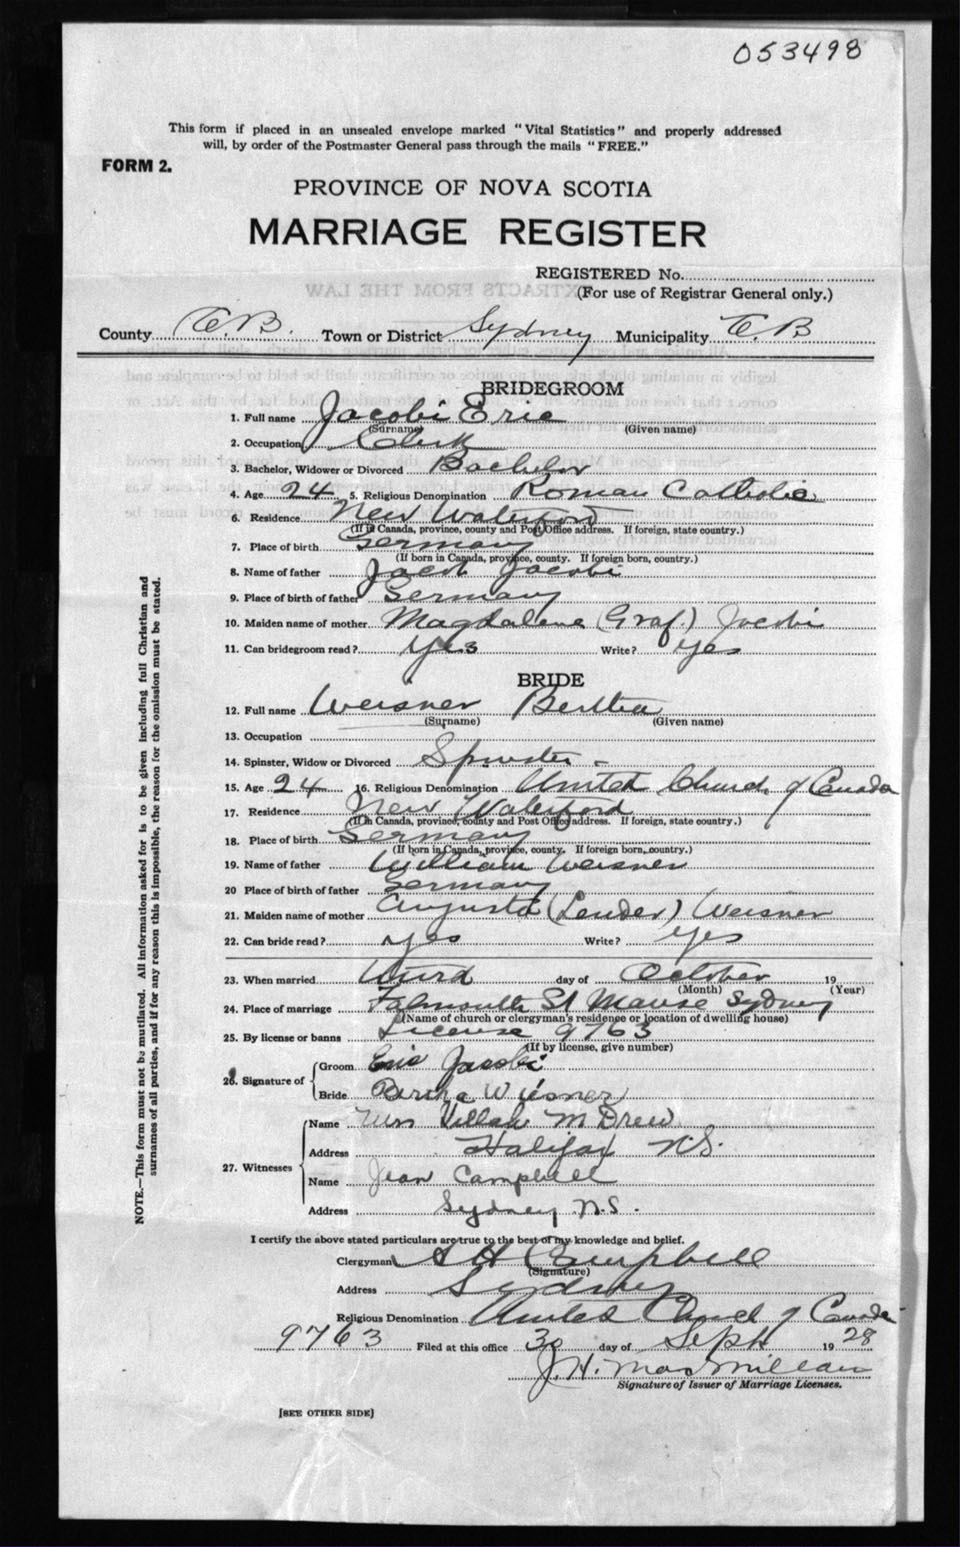 053498
This form if placed in an unsealed envelope marked "Vital Statistics" and properly addressed
will, by order of the Postmaster General pass through the mails "FREE."
FORM 2.
PROVINCE OF NOVA SCOTIA
MARRIAGE REGISTER
REGISTERED No.
(For use of Registrar General only.)
County C.B. Town or District Sydney Municipality C.B
BRIDEGROOM
1. Full name Jacobi Eric
(Surname) (Given name)
2. Occupation Clerk
3. Bachelor, Widower or Divorced Bachelor
4. Age 24 5. Religious Denomination Roman Catholic
6. Residence New Waterford
(If in Canada, province, county and Post Office address. If foreign, state country.)
7. Place of birth Germany
(If born in Canada, province, county. If foreign born, country.)
8. Name of father Jacob Jacobi
9. Place of birth of father Germany
10. Maiden name of mother Magdalena (Graf.) Jacobi
11. Can bridegroom read? Yes Write? Yes
BRIDE
12. Full name Weisner Bertha
(Surname) (Given name)
13. Occupation
14. Spinster, Widow or Divorced Spinster -
15. Age 24 16. Religious Denomination United Church of Canada
17. Residence New Waterford
(If in Canada, province, county and Post Office address. If foreign, state country.)
18. Place of birth Germany
(If born in Canada, province, county. If foreign born, country.)
19. Name of father William Weisner
20 Place of birth of father Germany
21. Maiden name of mother Augusta (Lender) Weisner
22. Can bride read? Yes Write? Yes
23. When married Third day of October 19
(Month) (Year)
24. Place of marriage Falmouth St Manse Sydney
(Name of church or clergyman's residence or location of dwelling house)
25. By license or banns License 9763
(If by license, give number)
26. Signature of
Groom Eric Jacobi
Bride Bertha Wiesner
27. Witnesses
Name Mrs M Drew
Address Halifax N.S.
Name Jean Campbell
Address Sydney N.S.
I certify the above stated particulars are true to the best of my knowledge and belief.
Clergyman A H Campbell
(Signature)
Address Sydney
Religious Denomination United Church of Canada
9763 Filed at this office 30 day of Sept 1928
J. H. MacMillan
Signature of Issuer of Marriage Licenses.
[SEE OTHER SIDE]
NOTE.—This form must not be mutilated. All information asked for is to be given including full Christian and
surnames of all parties, and if for any reason this is impossible, the reason for the omission must be stated.